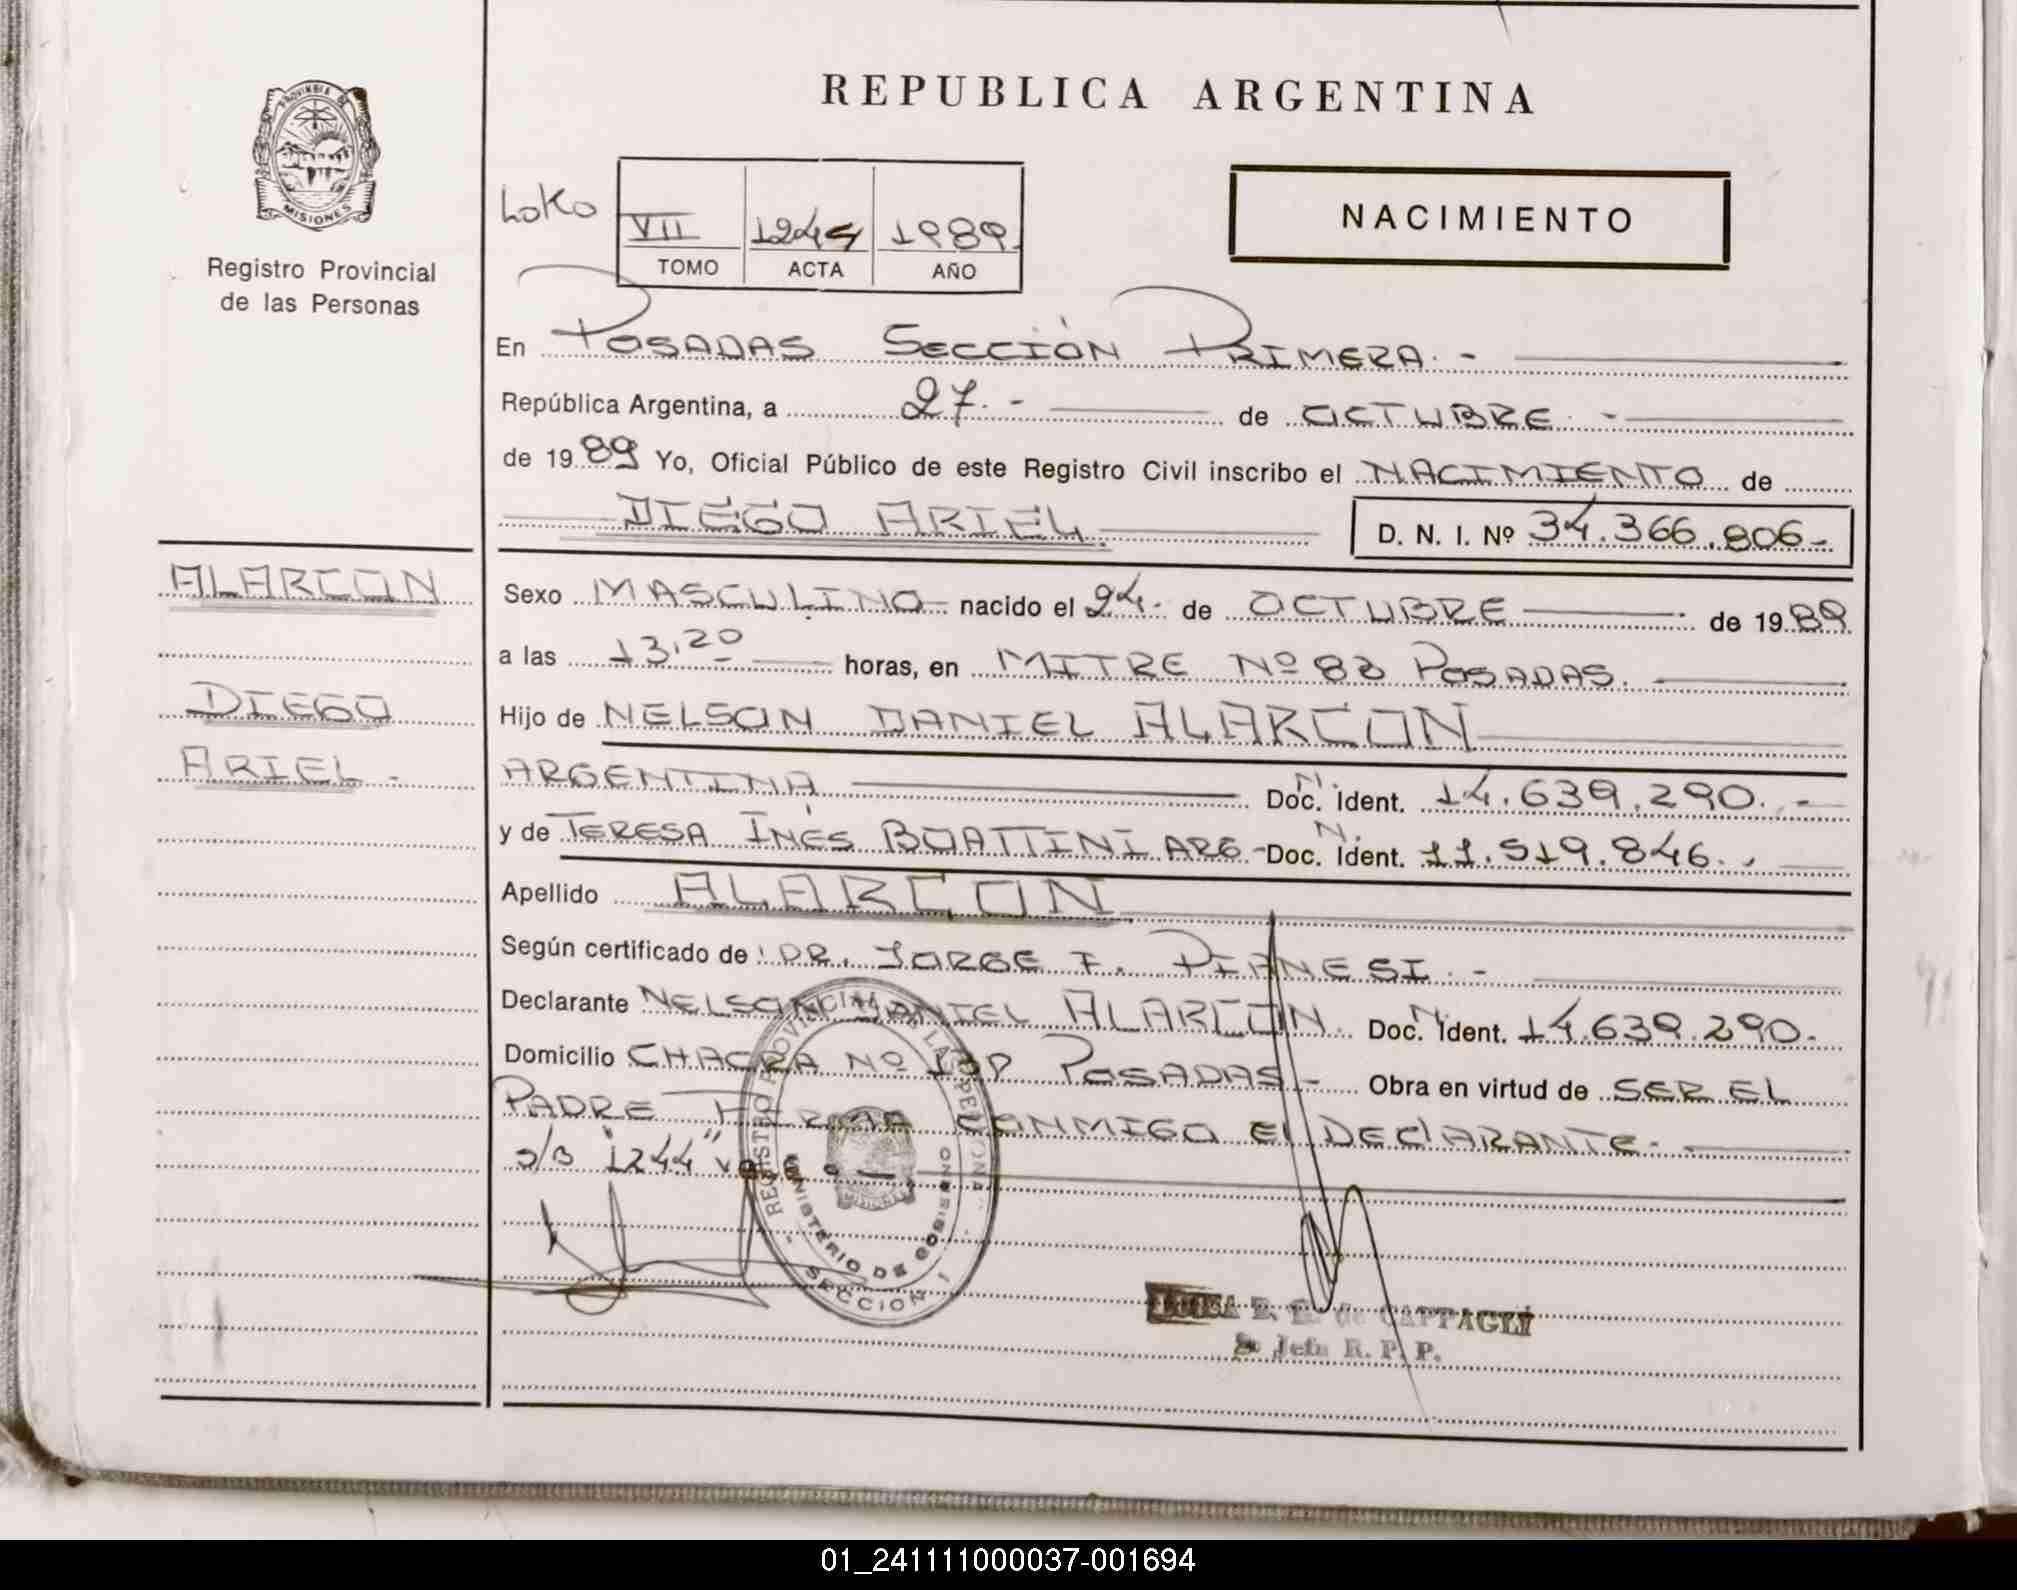 PROVINCIA DE
MISIONES
Registro Provincial
de las Personas
ALARCON
DIEGO
ARIEL -
REPUBLICA ARGENTINA
NACIMIENTO
VII 1244 1989
TOMO ACTA AÑO
En POSADAS SECCIÓN PRIMERA. -
República Argentina, a 27. - de OCTUBRE -
de 1989 Yo, Oficial Público de este Registro Civil inscribo el NACIMIENTO de
DIEGO ARIEL. D. N. I. Nº 34.366.806-
Sexo MASCULINO nacido el 24. de OCTUBRE de 1989
a las 13,20 horas, en MITRE Nº 83 POSADAS.
Hijo de NELSON DANIEL ALARCON
ARGENTINA Doc. N. Ident. 14.639.290. -
y de TERESA INÉS BOATTINI ARG - Doc. N. Ident. 11.519.846.
Apellido ALARCON
Según certificado de DR. JORGE F. PIANESI. -
Declarante NELSON DANIEL ALARCON. Doc. N. Ident. 14.639.290.
Domicilio CHACRA Nº POSADAS - Obra en virtud de SER EL
PADRE FIRMA CONMIGO El DEClARANTE. -
s/b "1244" vale
REGISTRO PROVINCIAL DE LAS PERSONAS
MINISTERIO DE GOBIERNO
SECCION 1
de CAPPAGLI
Jefa R. P. P.
01_241111000037-001694